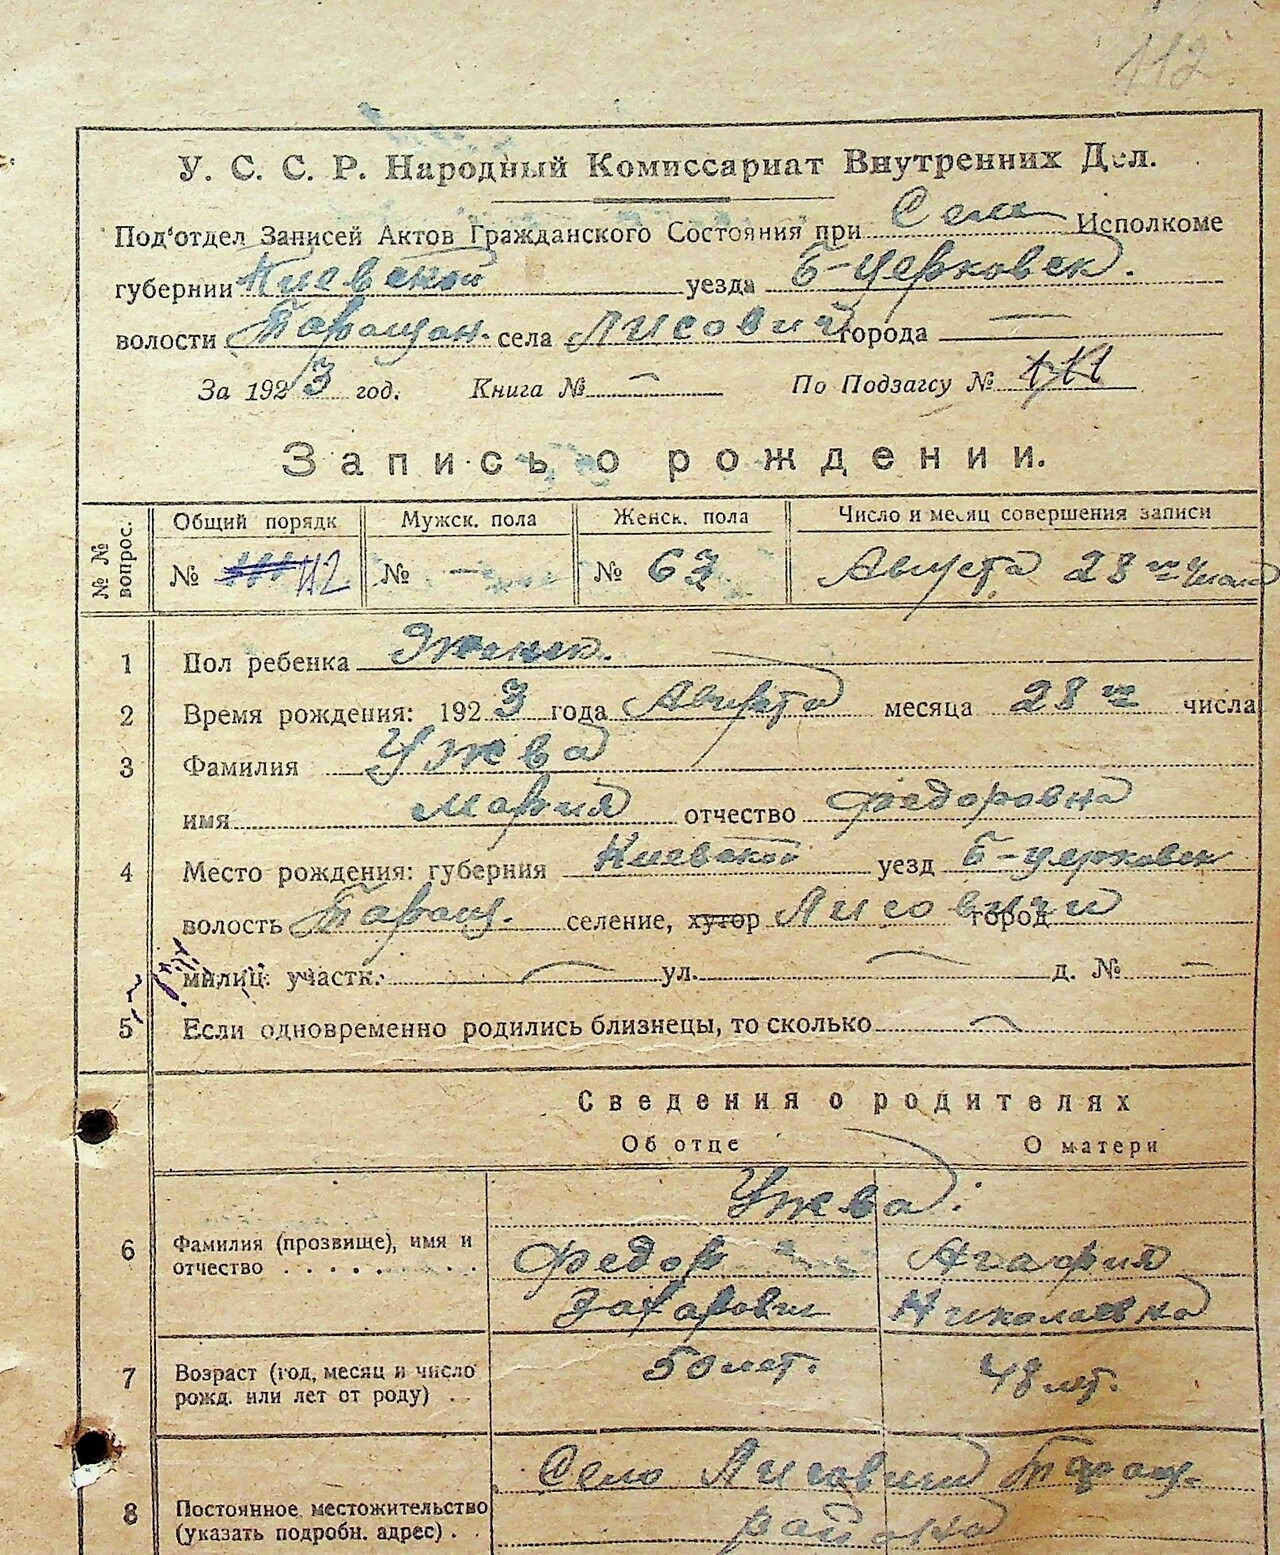 112
У. С. С. Р. Народный Комиссариат Внутренних Дел.
Под'отдел Записей Актов Гражданского Состояния при Сель Исполкоме
губернии Киевской уезда Б-церковск.
волости Таращан. села Лисович города —
За 1923 год. Книга № — По Подзагсу №
Запись о рождении.
№ № вопрос.
Общий порядк Мужск. пола Женск. пола Число и месяц совершения записи
№ 112 № — № 63 Августа 28 го числа
1 Пол ребенка Женск.
2 Время рождения: 1923 года Августа месяца 28 го числа
3 Фамилия Ужва
имя Мария отчество Федоровна
4 Место рождения: губерния Киевской уезд Б-церковск
волость Таращ. селение, хутор Лисовичи город
милиц. участк. — ул. — д. № —
5 Если одновременно родились близнецы, то сколько —
Сведения о родителях
Об отце О матери
Ужва.
6 Фамилия (прозвище), имя и отчество . . . . . . . . Федор Агафия
Захарович Николаевна
7 Возраст (год, месяц и число рожд. или лет от роду) . . 50 лет. 48 лет.
Село Лисовичи Таращ-
8 Постоянное местожительство (указать подробн. адрес) . . района